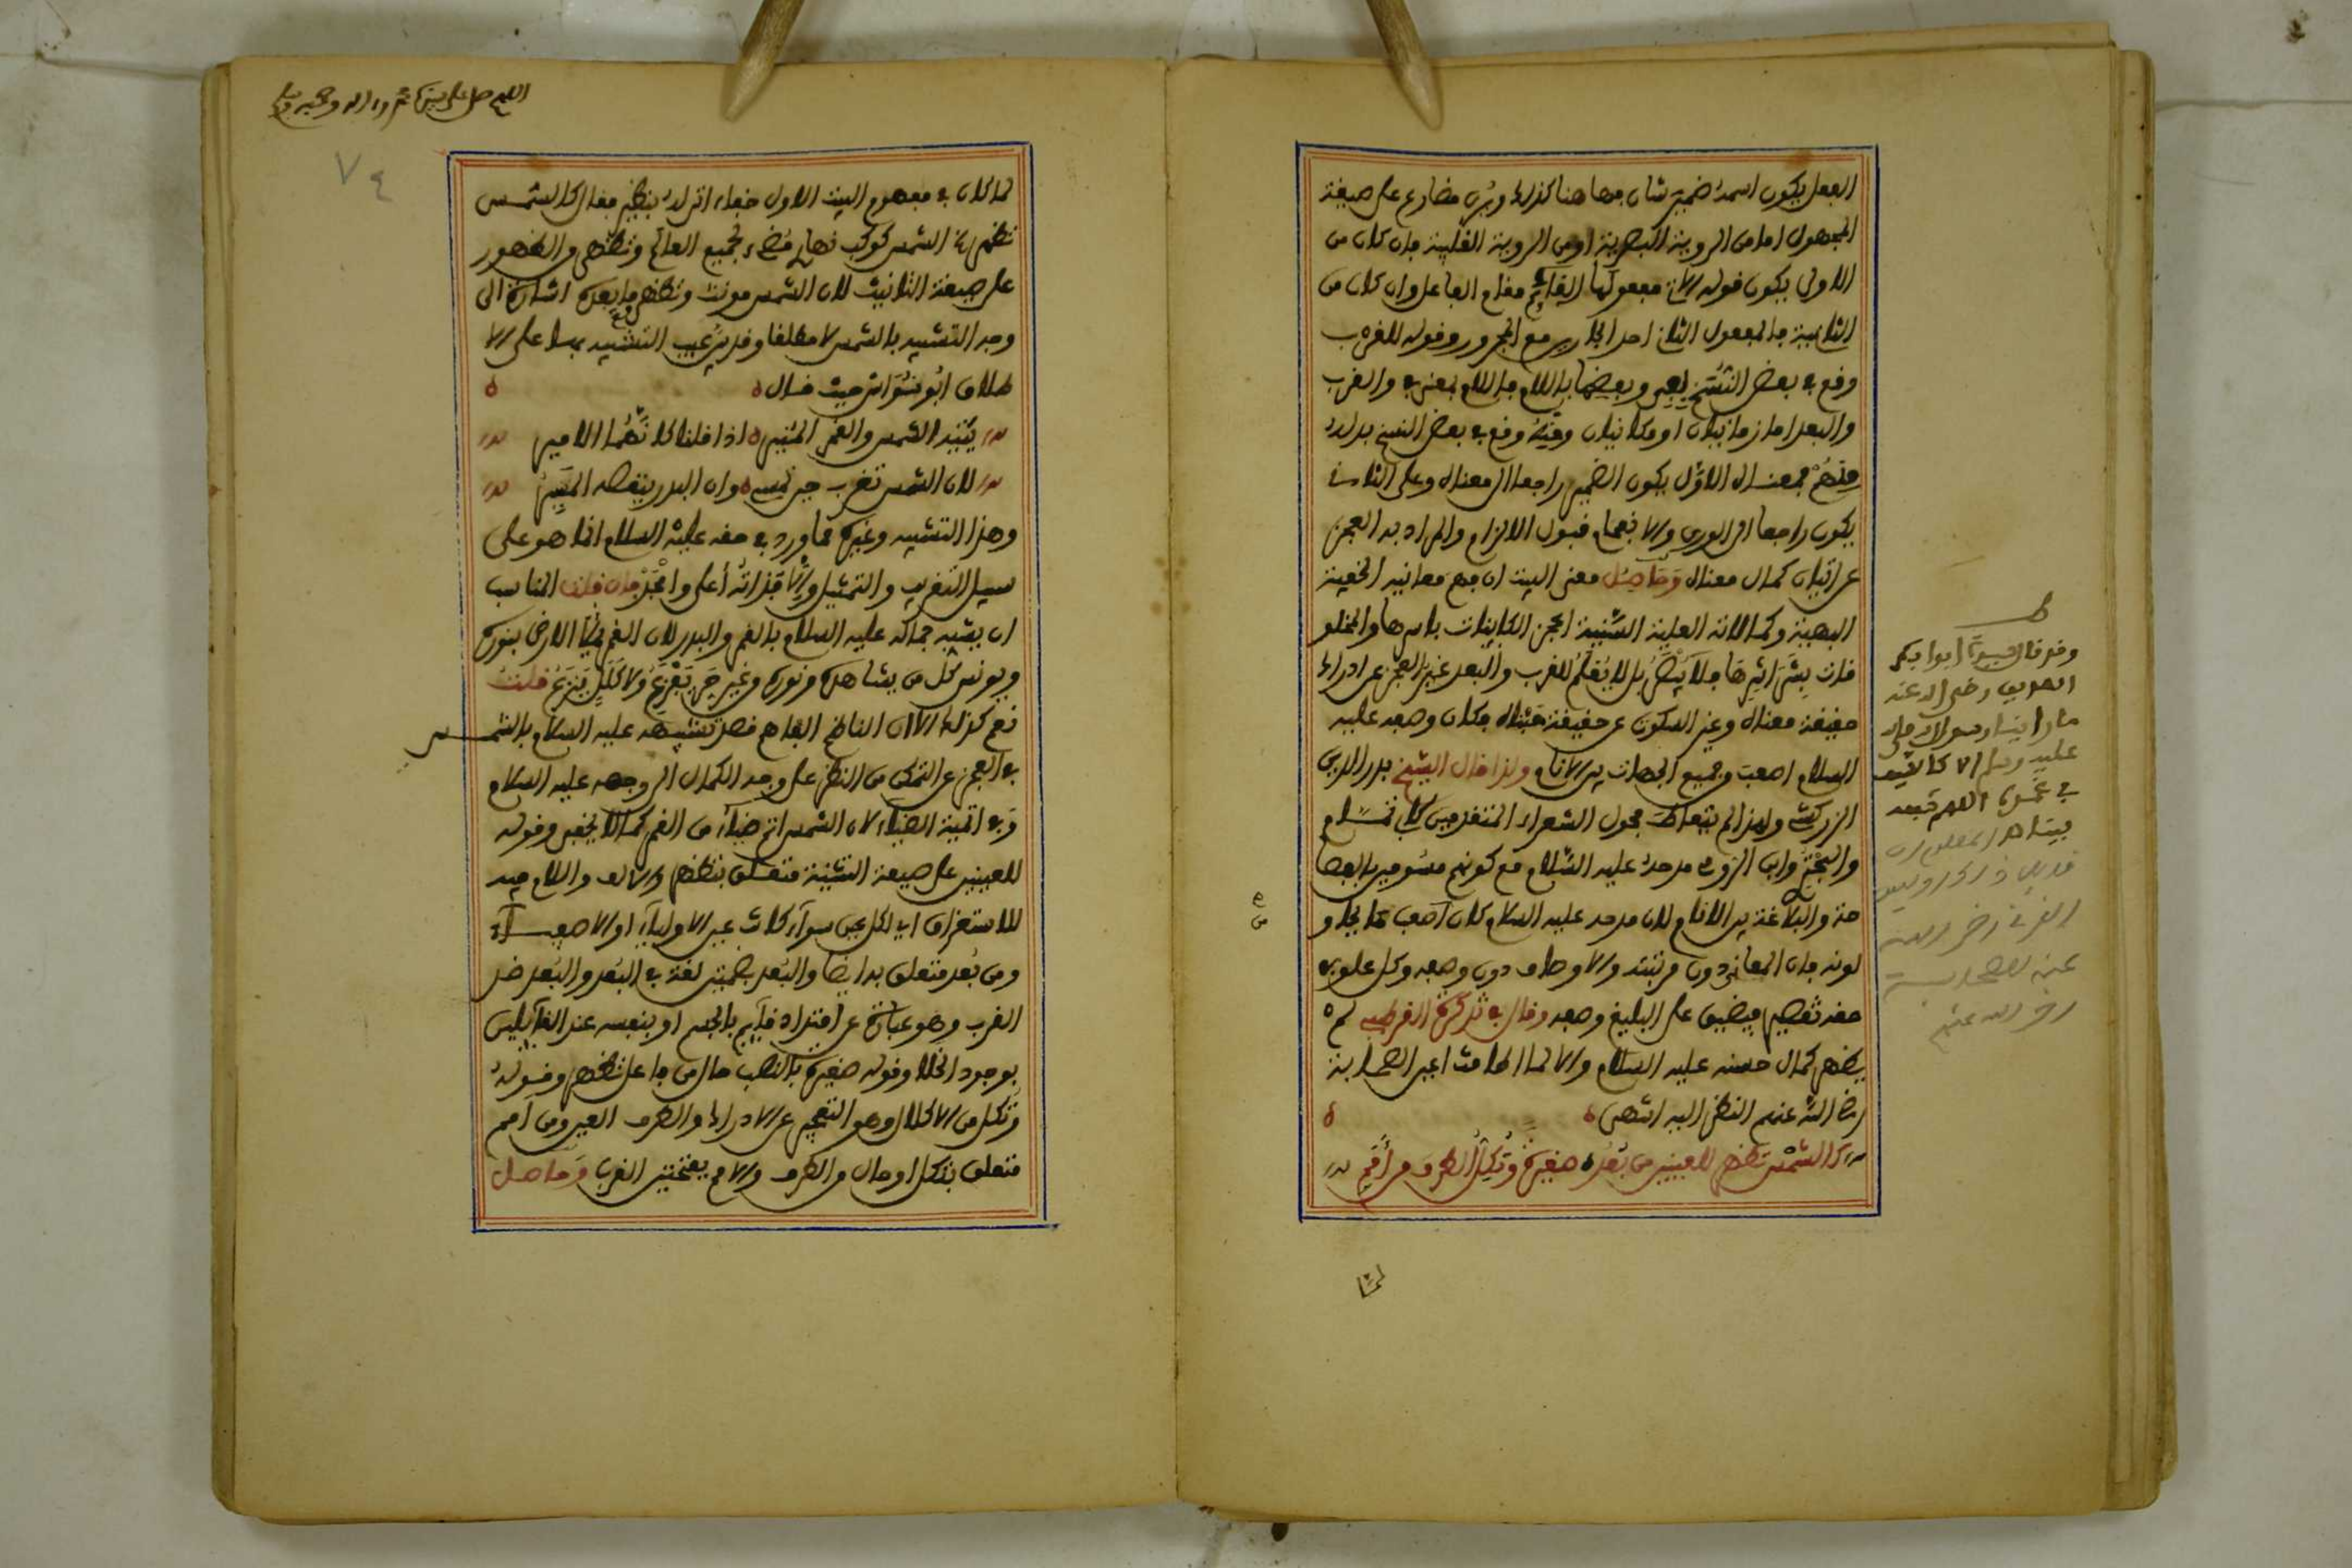 الفعل يكون اسمه ضمير شان فها هنا كذلك ويرى مضارع على صيغة
المجهول اما من الروية البصرية او من الروية القلبية فان كان من
الاولى يكون قوله مفعولها القايم مقام الفاعل وان كان من
الثانية فالمفعول الثاني احد الجارين مع المجرور وقوله للقرب
وقع في بعض النسخ بفي وبعضها باللام فاللام بمعنى في والقرب
والبعد اما زمانيان او مكانيان وفيه وقع في بعض النسخ بدله
منهم فمعناه الاول يكون الضمير راجعا الى معناه وعلى الثاني
يكون راجعا الى الورى والانفحام قبول الالزام والمراد به العجز
عن اتيان كمال معناه وحاصل معنى البيت ان فهم معانيه الخفية
البهية وكمالاته العلية السنية اعجز الكاينات باسرها والمخلو
قات بشر اشرها فلا يبصر بل لا يعلم للقرب والبعد غير العجز عن ادراك
حقيقة معناه وغير السكوت عن حقيقة مبناه فكان وصفه عليه
السلام اصعب جميع الجهات بين الانام ولذا قال الشيخ بدر الدين
الزركشي ولهذا لم يتعاط فحول الشعراء المتقدمين كابي تمام
والبحتري وابن الرومي مدحه عليه السلام مع كونهم مشومين بالفصا
حة والبلاغة بين الانام لان مدحه عليه السلام كان اصعب مما يحاو
لونه فان المعاني دون مرتبته والاوصاف دون وصفه وكل علو في
حقه تقصير فيضيق على البليغ وصفه وقال في تذكرة القرطبي لم
يظهر كمال حسنه عليه السلام والا لما اطاقت اعين الصحابة
رضي الله عنهم النظر اليه انتهى
كالشمس تظهر للعينين من بعد صغيرة وتكل الطرف من امم
لما
وقد قال سيدنا ابوا بكر
الصديق رضي الله عنه
ما راينا رسول الله صلى
عليه وسلم الا كالشمس
اللهم صل على سيدنا محمد واله وصحبه وسلم
٧٤
لما كان في مفهوم البيت الاول خفاء اتى له بنظير فقال كالشمس
تظهر الشمس كوكب نهاري مضيء لجميع العالم وتظهر والظهور
على صيغة التانيث لان الشمس مونث وتظهر وما بعده اشارة الى
وجه التشبيه بالشمس لا مطلقا وقد يعيب التشبيه بها على الا
طلاق ابو نواس حيث قال
يتيه الشمس والقمر المنير اذا قلنا كانهما الامير
لان الشمس تغرب حين تمسي وان البدر ينقصه المسير
وهذا التشبيه وغيره مما ورد في حقه عليه السلام انما هو على
سبيل التقريب والتمثيل والا فذاته أعلى وامجد فان قلت المناسب
ان يشبه جماله عليه السلام بالقمر والبدر لان القمر يملأ الارض بنوره
ويونس كل من يشاهده ونوره من غير حر يفزع ولا كلل ينزع قلت
نعم كذلك الا ان الناظم الفاهم قصد تشبيهه عليه السلام بالشمس
في العجز عن التمكن من النظر على وجه الكمال الى وجهه عليه السلام
وفي اتمية الضياء لان الشمس اتم ضياء من القمر كما لا يخفى وقوله
للعينين على صيغة التثنية متعلق بتظهر والالف واللام فيه
للاستغراق اي لكل عين سواء كانت عين الاولياء او الاصفياء
ومن بعد متعلق به ايضا والبعد بضمتين لغة في البعد والبعد ضد
القرب وهو عبارة عن امتداد قايم بالجسم او بنفسه عند القايلين
بوجود الخلا وقوله صغيرة بالنصب حال من فاعل تظهر وقوله
وتكل من الاكلال وهو التعجيز عن الادراك والطرف العين ومن امم
متعلق بتكل او حال من الطرف والامم بفتحتين القرب وحاصل